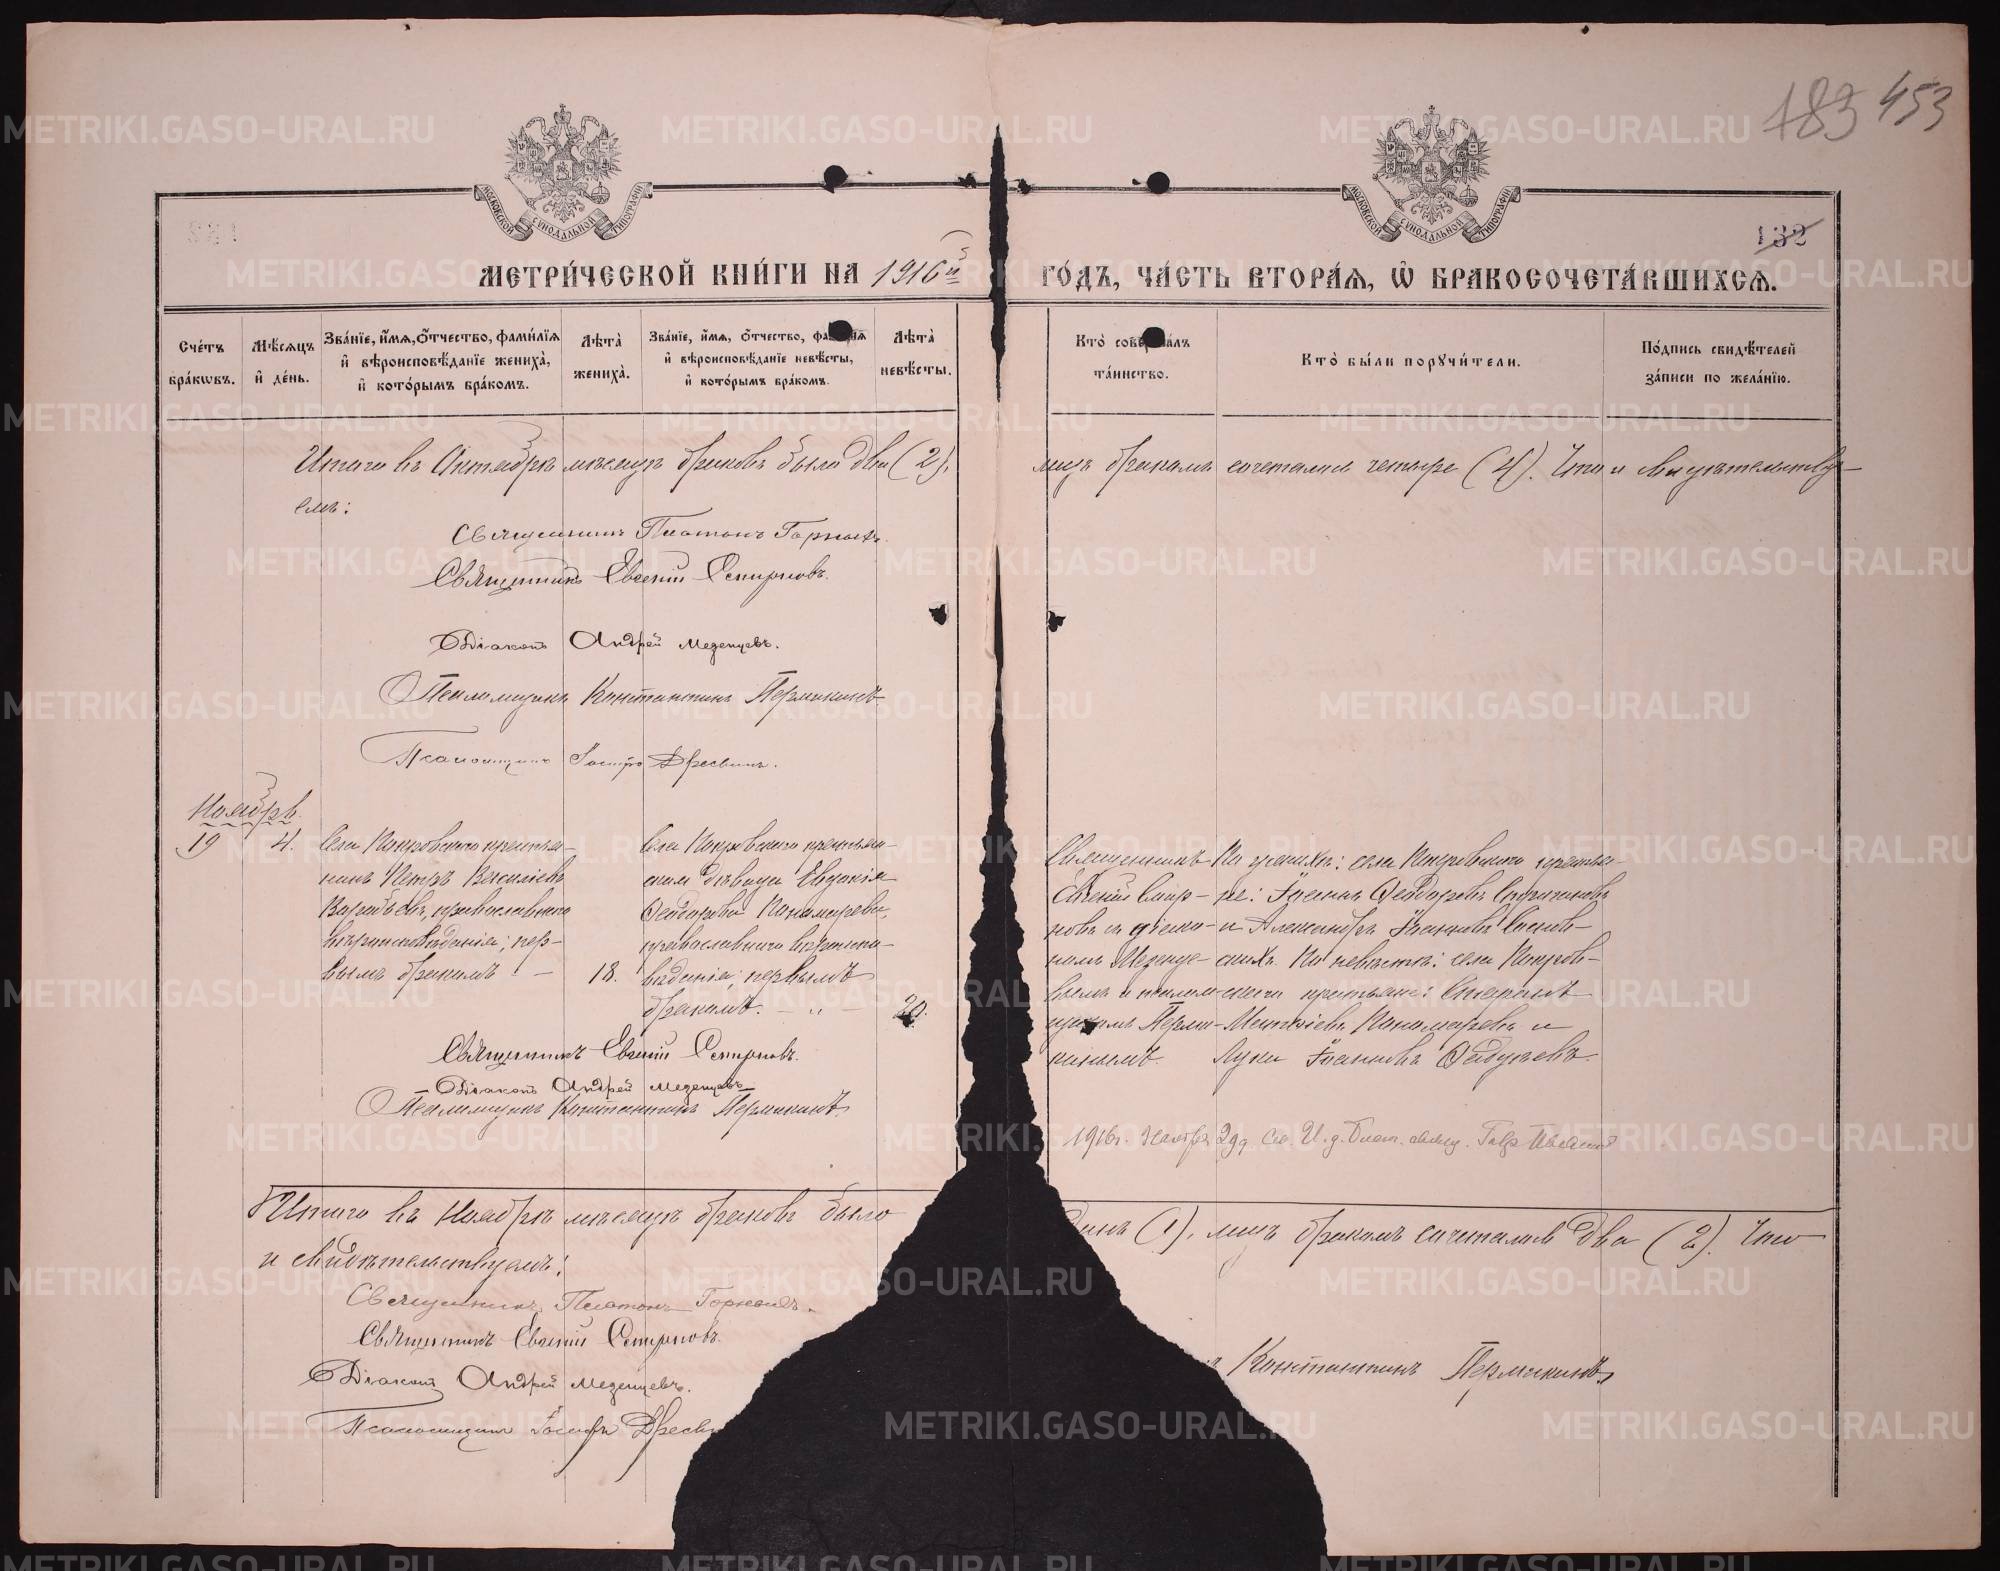 183 453
132
МОСКОВСКОЙ СѴНОДАЛЬНОЙ ТИПОГРАФІИ
МОСКОВСКОЙ СѴНОДАЛЬНОЙ ТИПОГРАФІИ
МЕТРИ́ЧЕСКОЙ КНИ́ГИ НА 1916й ГО́ДЪ, ЧА́СТЬ ВТОРА́Я, Ѡ БРАКОСОЧЕТА́ВШИХСЯ.
Сче́тъ бра́кѡвъ.
Мѣ́сяцъ и҆ де́нь.
Зва́нїе, и҆́мя, ѻ҆́тчество, фами́лїя и҆ вѣроисповѣ́данїе жениха̀, и҆ кото́рымъ бра́комъ.
Лѣ́та жениха̀.
Зва́нїе, и҆́мя, ѻ҆́тчество, фами́лїя и҆ вѣроисповѣ́данїе невѣ́сты, и҆ кото́рымъ бра́комъ.
Лѣ́та невѣ́сты.
Кто̀ соверша́лъ та́инство.
Кто̀ бы́ли порꙋчи́тели.
По́дпись свидѣ́телей за́писи по жела́нїю.
Итого въ Октябрѣ мѣсяцѣ браковъ было два (2), лицъ бракомъ сочеталось четыре (4). Что и свидѣтельству-
емъ:
Священникъ Платонъ Горныхъ.
Священникъ Евгеній Смирновъ.
Діаконъ Андрей Мезенцевъ.
Псаломщикъ Константинъ Пермикинъ
Псаломщикъ Іосифъ Дресвинъ.
Ноябрь.
19 4.
Села Покровскаго крестья-
нинъ Петръ Василіевъ
Воробьевъ, православнаго
вѣроисповѣданія; пер-
вымъ бракомъ – 18.
Села Покровскаго крестьян-
ская дѣвица Евдокія
Ѳеодорова Пономарева,
православнаго вѣроиспо-
вѣданія; первымъ
бракомъ. – „ – 20.
Священникъ
Евгеній Смир-
новъ съ діако-
номъ Мезенце-
вымъ и псалом-
щикомъ Перми-
кинымъ.
По женихѣ: села Покровскаго крестья-
не: Іоаннъ Ѳеодоровъ
и Александръ Іоанновъ
По невѣстѣ: села Покров-
скаго крестьяне:
Матѳіевъ Пономаревъ и
Лука Іоанновъ
Священникъ Евгеній Смирновъ.
Діаконъ Андрей Мезенцевъ
Псаломщикъ Константинъ Пермикинъ.
1916 г. Ноября 29 д.
Итого въ Ноябрѣ мѣсяцѣ браковъ было динъ (1), лицъ бракомъ сочеталось два (2). Что
и свидѣтельствуемъ:
Священникъ Платонъ Горныхъ.
Священникъ Евгеній Смирновъ.
Діаконъ Андрей Мезенцевъ.
Константинъ Пермикинъ
Псаломщикъ Іосифъ Дресв
METRIKI.GASO-URAL.RU